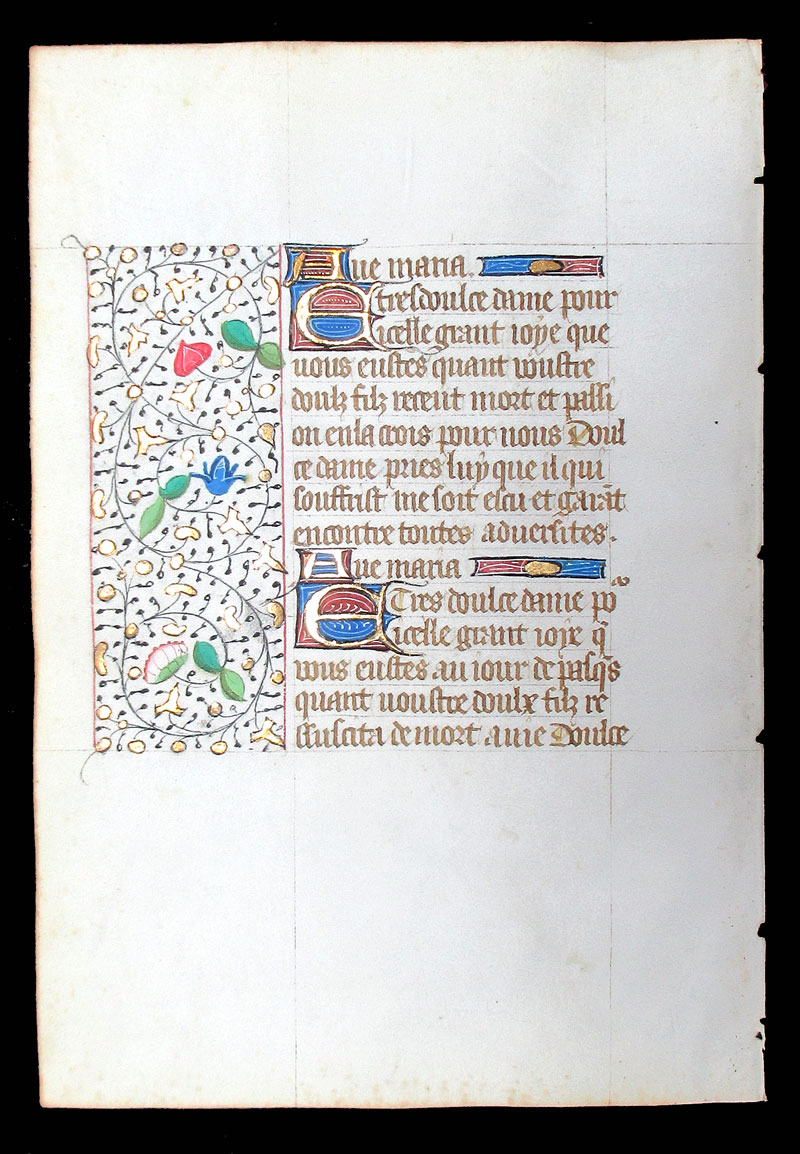 Aue maria.
E tresdoulce dame pour
icelle grant ioye que
uous eustes quant uoustre
doulz filz receut mort et passi
on en la crois pour nous Doul
ce dame pries luy que il qui
souffrist me soit escu et garāt
encontre toutes aduersites.
Aue maria
E Tres doulce dame po
icelle grant ioye q̄
vous eustes au iour de pasq̄s
quant uoustre doulx filz re
ssuscita de mort a uie Doulce